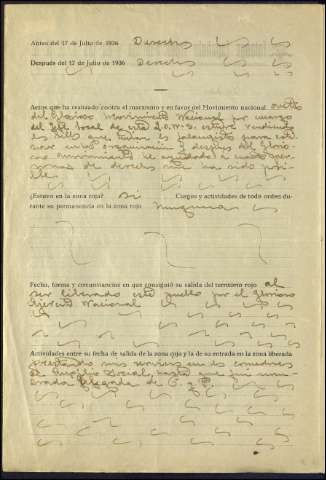 Antes del 17 de Julio de 1936 Derechas
Después del 17 de Julio de 1936 Derechas
Actos que ha realizado contra el marxismo y en favor del Movimiento nacional antes
del Glorioso Movimiento Nacional por encargo
del Jefe local de esta J.O.N.S. estuve vendiendo
que, de falangistas para
organización y después del Glorio-
so Movimiento he ayudado a cuantas per-
sonas de derechas me ha sido posi-
ble.
¿Estuvo en la zona roja? Si Cargos y actividades de todo orden du-
rante su permanencia en la zona roja Ninguna
Fecha, forma y circunstancias en que consiguió su salida del territorio rojo al
ser liberado este pueblo por el Glorioso
Ejercito Nacional
Actividades entre su fecha de salida de la zona roja y la de su entrada en la zona liberada
prestando mis servicios en los comedores
de Auxilio Social, hasta que fui
Brigada de